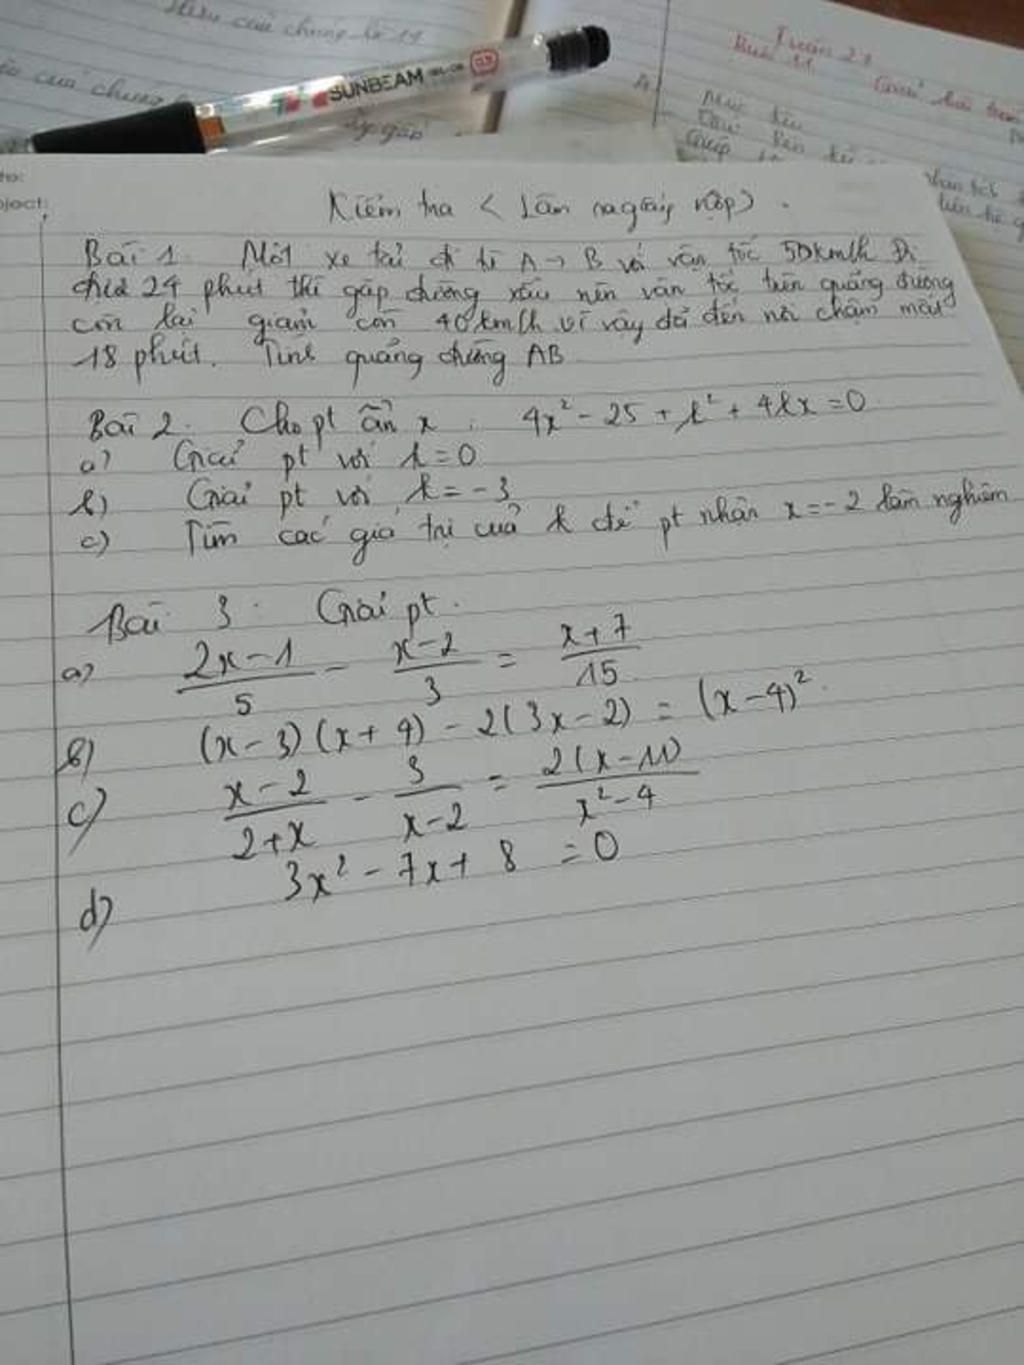 SUNBEAM
Kiểm tra ( Làm ra giấy nộp) .
Bài 1 Một xe tải đi từ A → B với vận tốc 50km/h Đi
được 24 phút thì gặp đường xấu nên vận tốc trên quãng đường
còn lại giảm còn 40km/h vì vậy đã đến nơi chậm mất
18 phút. Tính quãng đường AB
Bài 2. Cho pt ẩn x . 4x² - 25 + k² + 4kx = 0
a) Giải pt với k = 0
b) Giải pt với k = -3
c) Tìm các giá trị của k để pt nhận x = -2 làm nghiệm
Bài 3. Giải pt.
a) (2x-1)/5 - (x-2)/3 = (x+7)/15
b) (x-3)(x+4) - 2(3x-2) = (x-4)².
c) (x-2)/(2+x) - 3/(x-2) = 2(x-11)/(x²-4)
d) 3x² - 7x + 8 = 0